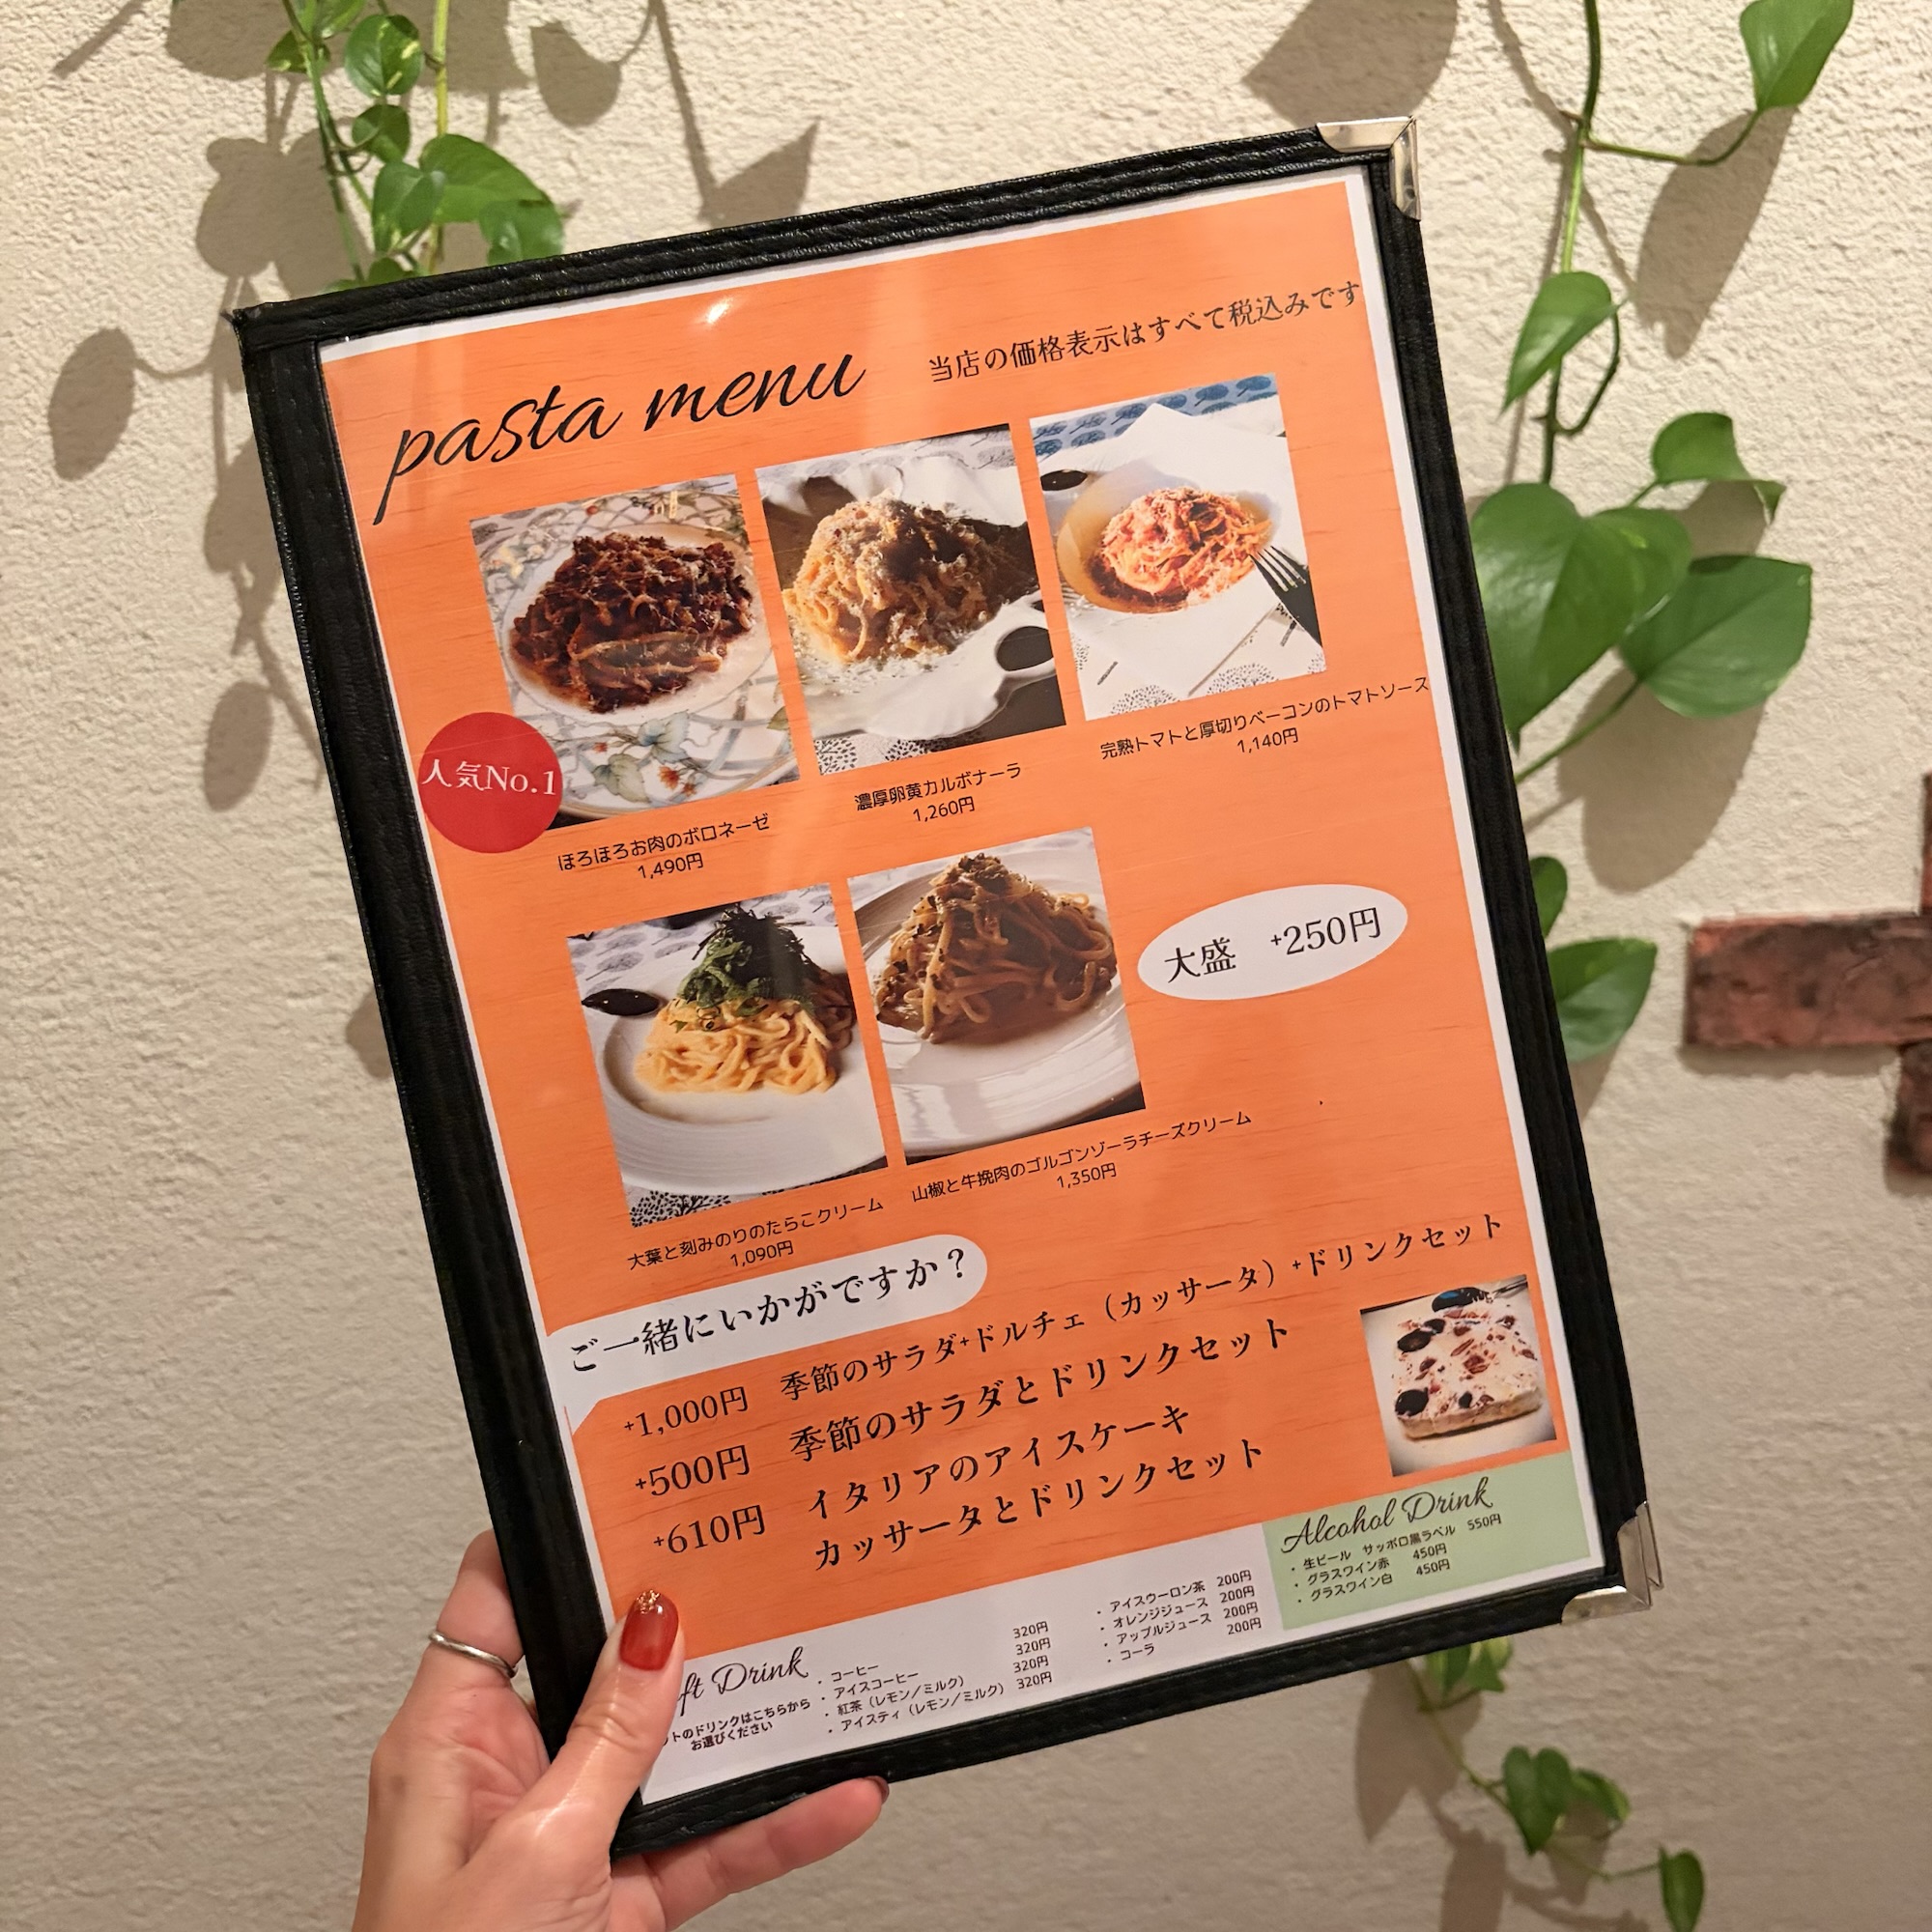 pasta menu
当店の価格表示はすべて税込みです
人気No.1
ほろほろお肉のボロネーゼ
1,490円
濃厚卵黄カルボナーラ
1,260円
完熟トマトと厚切りベーコンのトマトソース
1,140円
大葉と刻みのりのたらこクリーム
1,090円
山椒と牛挽肉のゴルゴンゾーラチーズクリーム
1,350円
大盛 +250円
ご一緒にいかがですか？
+1,000円 季節のサラダ+ドルチェ（カッサータ）+ドリンクセット
+500円 季節のサラダとドリンクセット
+610円 イタリアのアイスケーキ
カッサータとドリンクセット
ft Drink
トのドリンクはこちらから
お選びください
・コーヒー 320円
・アイスコーヒー 320円
・紅茶（レモン／ミルク） 320円
・アイスティ（レモン／ミルク） 320円
・アイスウーロン茶 200円
・オレンジジュース 200円
・アップルジュース 200円
・コーラ 200円
Alcohol Drink
・生ビール サッポロ黒ラベル 550円
・グラスワイン赤 450円
・グラスワイン白 450円